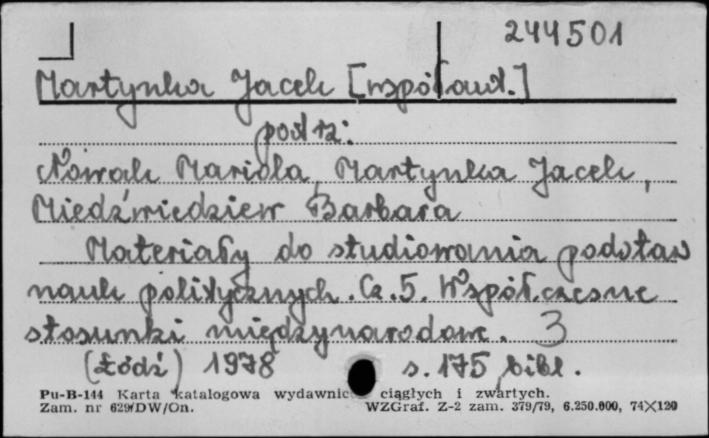 244501
Martynka Jacek [współaut.]
pod tz:
Nowak Mariola, Martynka Jacek,
Miedźwiedziew Barbara
Materiały do studiowania podstaw
nauk politycznych. Cz. 5. Współczesne
stosunki międzynarodowe. 3
(Łódź) 1978 s. 175, bibl.
Pu-B-144 Karta katalogowa wydawnic ciągłych i zwartych.
Zam. nr 629/DW/On. WZGraf. Z-2 zam. 379/79, 6.250.000, 74×120